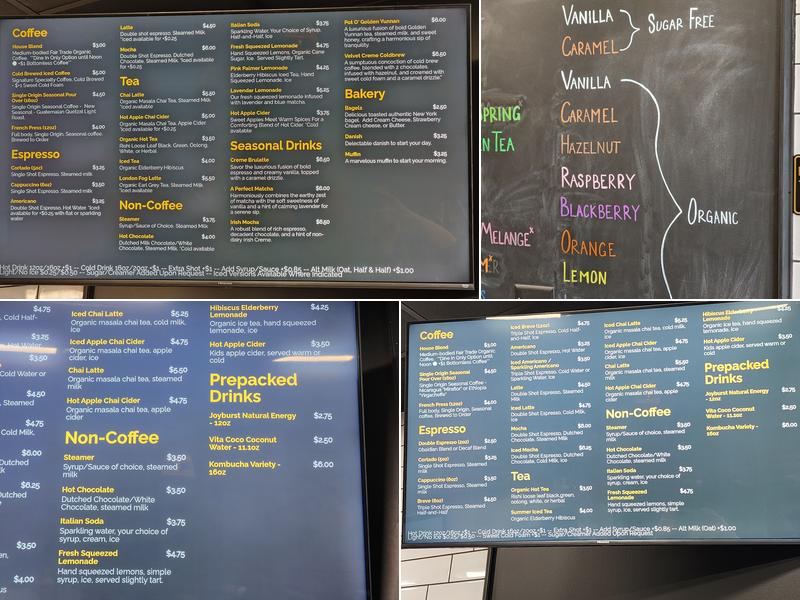 Coffee
House Blend $3.00
Medium-bodied Fair Trade Organic
Cold Brewed Iced Coffee $5.00
Signature Specialty Coffee, Cold Brewed
Single Origin Seasonal Pour
Over (16oz) $4.50
Single Origin Seasonal Coffee - New
Seasonal - Guatemalan Quetzal Light
Roast.
French Press (12oz) $4.00
Full body, Single Origin, Seasonal coffee,
Brewed to Order
Espresso
Cortado (5oz) $3.50
Single Shot Espresso, Steamed milk
Cappuccino (6oz) $3.50
Single Shot Espresso, Steamed milk
Americano $3.25
Double Shot Espresso, Hot Water *Iced
available for +$0.25 with flat or sparkling
water
Latte $4.50
Double shot espresso, Steamed Milk.
*Iced available for +$0.25
Mocha $6.00
Double Shot Espresso, Dutched
Chocolate, Steamed Milk *Iced available
for +$0.25
Tea
Chai Latte $5.50
Organic Masala Chai Tea, Steamed Milk
*Iced available
Hot Apple Chai Cider $5.00
Organic Masala Chai Tea, Apple Cider.
*Iced available for +$0.25
Organic Hot Tea $3.50
Rishi Loose Leaf Black, Green, Oolong,
White, or Herbal
Iced Tea $4.00
Organic Elderberry Hibiscus
London Fog Latte $5.50
Organic Earl Grey Tea, Steamed Milk.
*Iced available
Non-Coffee
Steamer $3.75
Syrup/Sauce of Choice, Steamed Milk
Hot Chocolate $4.00
Dutched Milk Chocolate/White
Chocolate, Steamed Milk. *Cold available
Italian Soda $3.75
Sparkling Water, Your Choice of Syrup.
Half-and-Half, Ice
Fresh Squeezed Lemonade $4.75
Hand Squeezed Lemons, Organic Cane
Sugar, Ice. Served Slightly Tart.
Pink Palmer Lemonade $4.25
Elderberry Hibiscus Iced Tea, Hand
Squeezed Lemonade, Ice
Lavender Lemonade $5.25
Our fresh squeezed lemonade infused
with lavender and blue matcha.
Hot Apple Cider $3.75
Sweet Apples Meet Warm Spices For a
Comforting Blend of Hot Cider. *Cold
available
Seasonal Drinks
Creme Brulatte $6.50
Savor the luxurious fusion of bold
espresso and creamy vanilla, topped
with a caramel drizzle.
A Perfect Matcha $6.00
Harmoniously combines the earthy zest
of matcha with the soft sweetness of
vanilla and a hint of calming lavender for
a serene sip.
Irish Mocha $6.50
A robust blend of rich espresso,
decadent chocolate, and a hint of non-
dairy Irish Creme.
Pot O' Golden Yunnan $6.00
A luxurious fusion of bold Golden
Yunnan tea, steamed milk, and sweet
honey, crafting a harmonious sip of
tranquility.
Velvet Creme Coldbrew $6.50
A sumptuous concoction of cold brew
coffee, blended with 2 chocolates,
infused with hazelnut, and crowned with
sweet cold foam and a caramel drizzle.
Bakery
Bagels $2.50
Delicious toasted authentic New York
bagel. Add Cream Cheese, Strawberry
Cream cheese, or Butter.
Danish $3.25
Delectable danish to start your day.
Muffin $3.25
A marvelous muffin to start your morning.
Hot Drink 12oz/16oz +$1 -- Cold Drink 16oz/20oz +$1 -- Extra Shot +$1 -- Add Syrup/Sauce +$0.85 -- Alt Milk (Oat, Half & Half) +$1.00
Light/No Ice $0.25/$0.50 -- Sugar/Creamer Added Upon Request -- Iced Versions Available Where Indicated
Vanilla
Caramel
Sugar Free
Vanilla
Caramel
Hazelnut
Raspberry
Blackberry
Orange
Lemon
Organic
Spring
n Tea
Melange*
$4.75
, Cold Half-
$3.25
$3.50
Cold Water or
$4.50
, Steamed
$4.75
$6.00
Dutched
$6.25
Dutched
$3.50
$4.00
Iced Chai Latte $5.25
Organic masala chai tea, cold milk,
ice
Iced Apple Chai Cider $4.75
Organic masala chai tea, apple
cider, ice
Chai Latte $5.50
Organic masala chai tea, steamed
milk
Hot Apple Chai Cider $4.75
Organic masala chai tea, apple
cider
Non-Coffee
Steamer $3.50
Syrup/Sauce of choice, steamed
milk
Hot Chocolate $3.50
Dutched Chocolate/White
Chocolate, steamed milk
Italian Soda $3.75
Sparkling water, your choice of
syrup, cream, ice
Fresh Squeezed
Lemonade $4.75
Hand squeezed lemons, simple
syrup, ice, served slightly tart.
Hibiscus Elderberry
Lemonade $4.25
Organic ice tea, hand squeezed
lemonade, ice
Hot Apple Cider $3.50
Kids apple cider, served warm or
cold
Prepacked
Drinks
Joyburst Natural Energy
- 12oz $2.75
Vita Coco Coconut
Water - 11.1oz $2.50
Kombucha Variety -
16oz $6.00
Coffee
House Blend $3.00
Medium-bodied Fair Trade Organic
Single Origin Seasonal
Pour Over (16oz) $4.50
Single Origin Seasonal Coffee -
French Press (12oz) $4.00
Full body, Single Origin, Seasonal
coffee, Brewed to Order
Espresso
Double Espresso (2oz) $2.50
Obsidian Blend or Decaf Blend
Cortado (5oz) $3.50
Single Shot Espresso, Steamed
milk
Cappuccino (6oz) $3.50
Single Shot Espresso, Steamed
milk
Breve (8oz) $4.50
Triple Shot Espresso, Steamed
Half-and-Half
Iced Breve (12oz) $4.75
Triple Shot Espresso, Cold Half-
and-Half, Ice
Americano $3.25
Double Shot Espresso, Hot Water
Iced Americano /
Sparkling Americano $3.50
Triple Shot Espresso, Cold Water or
Sparkling Water, Ice
Latte $4.50
Double Shot Espresso, Steamed
Milk
Iced Latte $4.75
Double Shot Espresso, Cold Milk,
Ice
Mocha $6.00
Double Shot Espresso, Dutched
Chocolate, Steamed Milk
Iced Mocha $6.25
Double Shot Espresso, Dutched
Chocolate, Cold Milk, Ice
Tea
Organic Hot Tea $3.50
Rishi loose leaf black, green,
oolong, white, or herbal
Summer Iced Tea $4.00
Organic Elderberry Hibiscus
Iced Chai Latte $5.25
Organic masala chai tea, cold milk,
ice
Iced Apple Chai Cider $4.75
Organic masala chai tea, apple
cider, ice
Chai Latte $5.50
Organic masala chai tea, steamed
milk
Hot Apple Chai Cider $4.75
Organic masala chai tea, apple
cider
Non-Coffee
Steamer $3.50
Syrup/Sauce of choice, steamed
milk
Hot Chocolate $3.50
Dutched Chocolate/White
Chocolate, steamed milk
Italian Soda $3.75
Sparkling water, your choice of
syrup, cream, ice
Fresh Squeezed
Lemonade $4.75
Hand squeezed lemons, simple
syrup, ice, served slightly tart.
Hibiscus Elderberry
Lemonade $4.25
Organic ice tea, hand squeezed
lemonade, ice
Hot Apple Cider $3.50
Kids apple cider, served warm or
cold
Prepacked
Drinks
Joyburst Natural Energy
- 12oz $2.75
Vita Coco Coconut
Water - 11.1oz $2.50
Kombucha Variety -
16oz $6.00
Hot Drink 12oz/16oz +$1 -- Cold Drink 16oz/20oz +$1 -- Extra Shot +$1 -- Add Syrup/Sauce +$0.85 -- Alt Milk (Oat) +$1.00
Light/No Ice $0.25/$0.50 -- Sweet Cold Foam +$1 -- Sugar/Creamer Added Upon Request